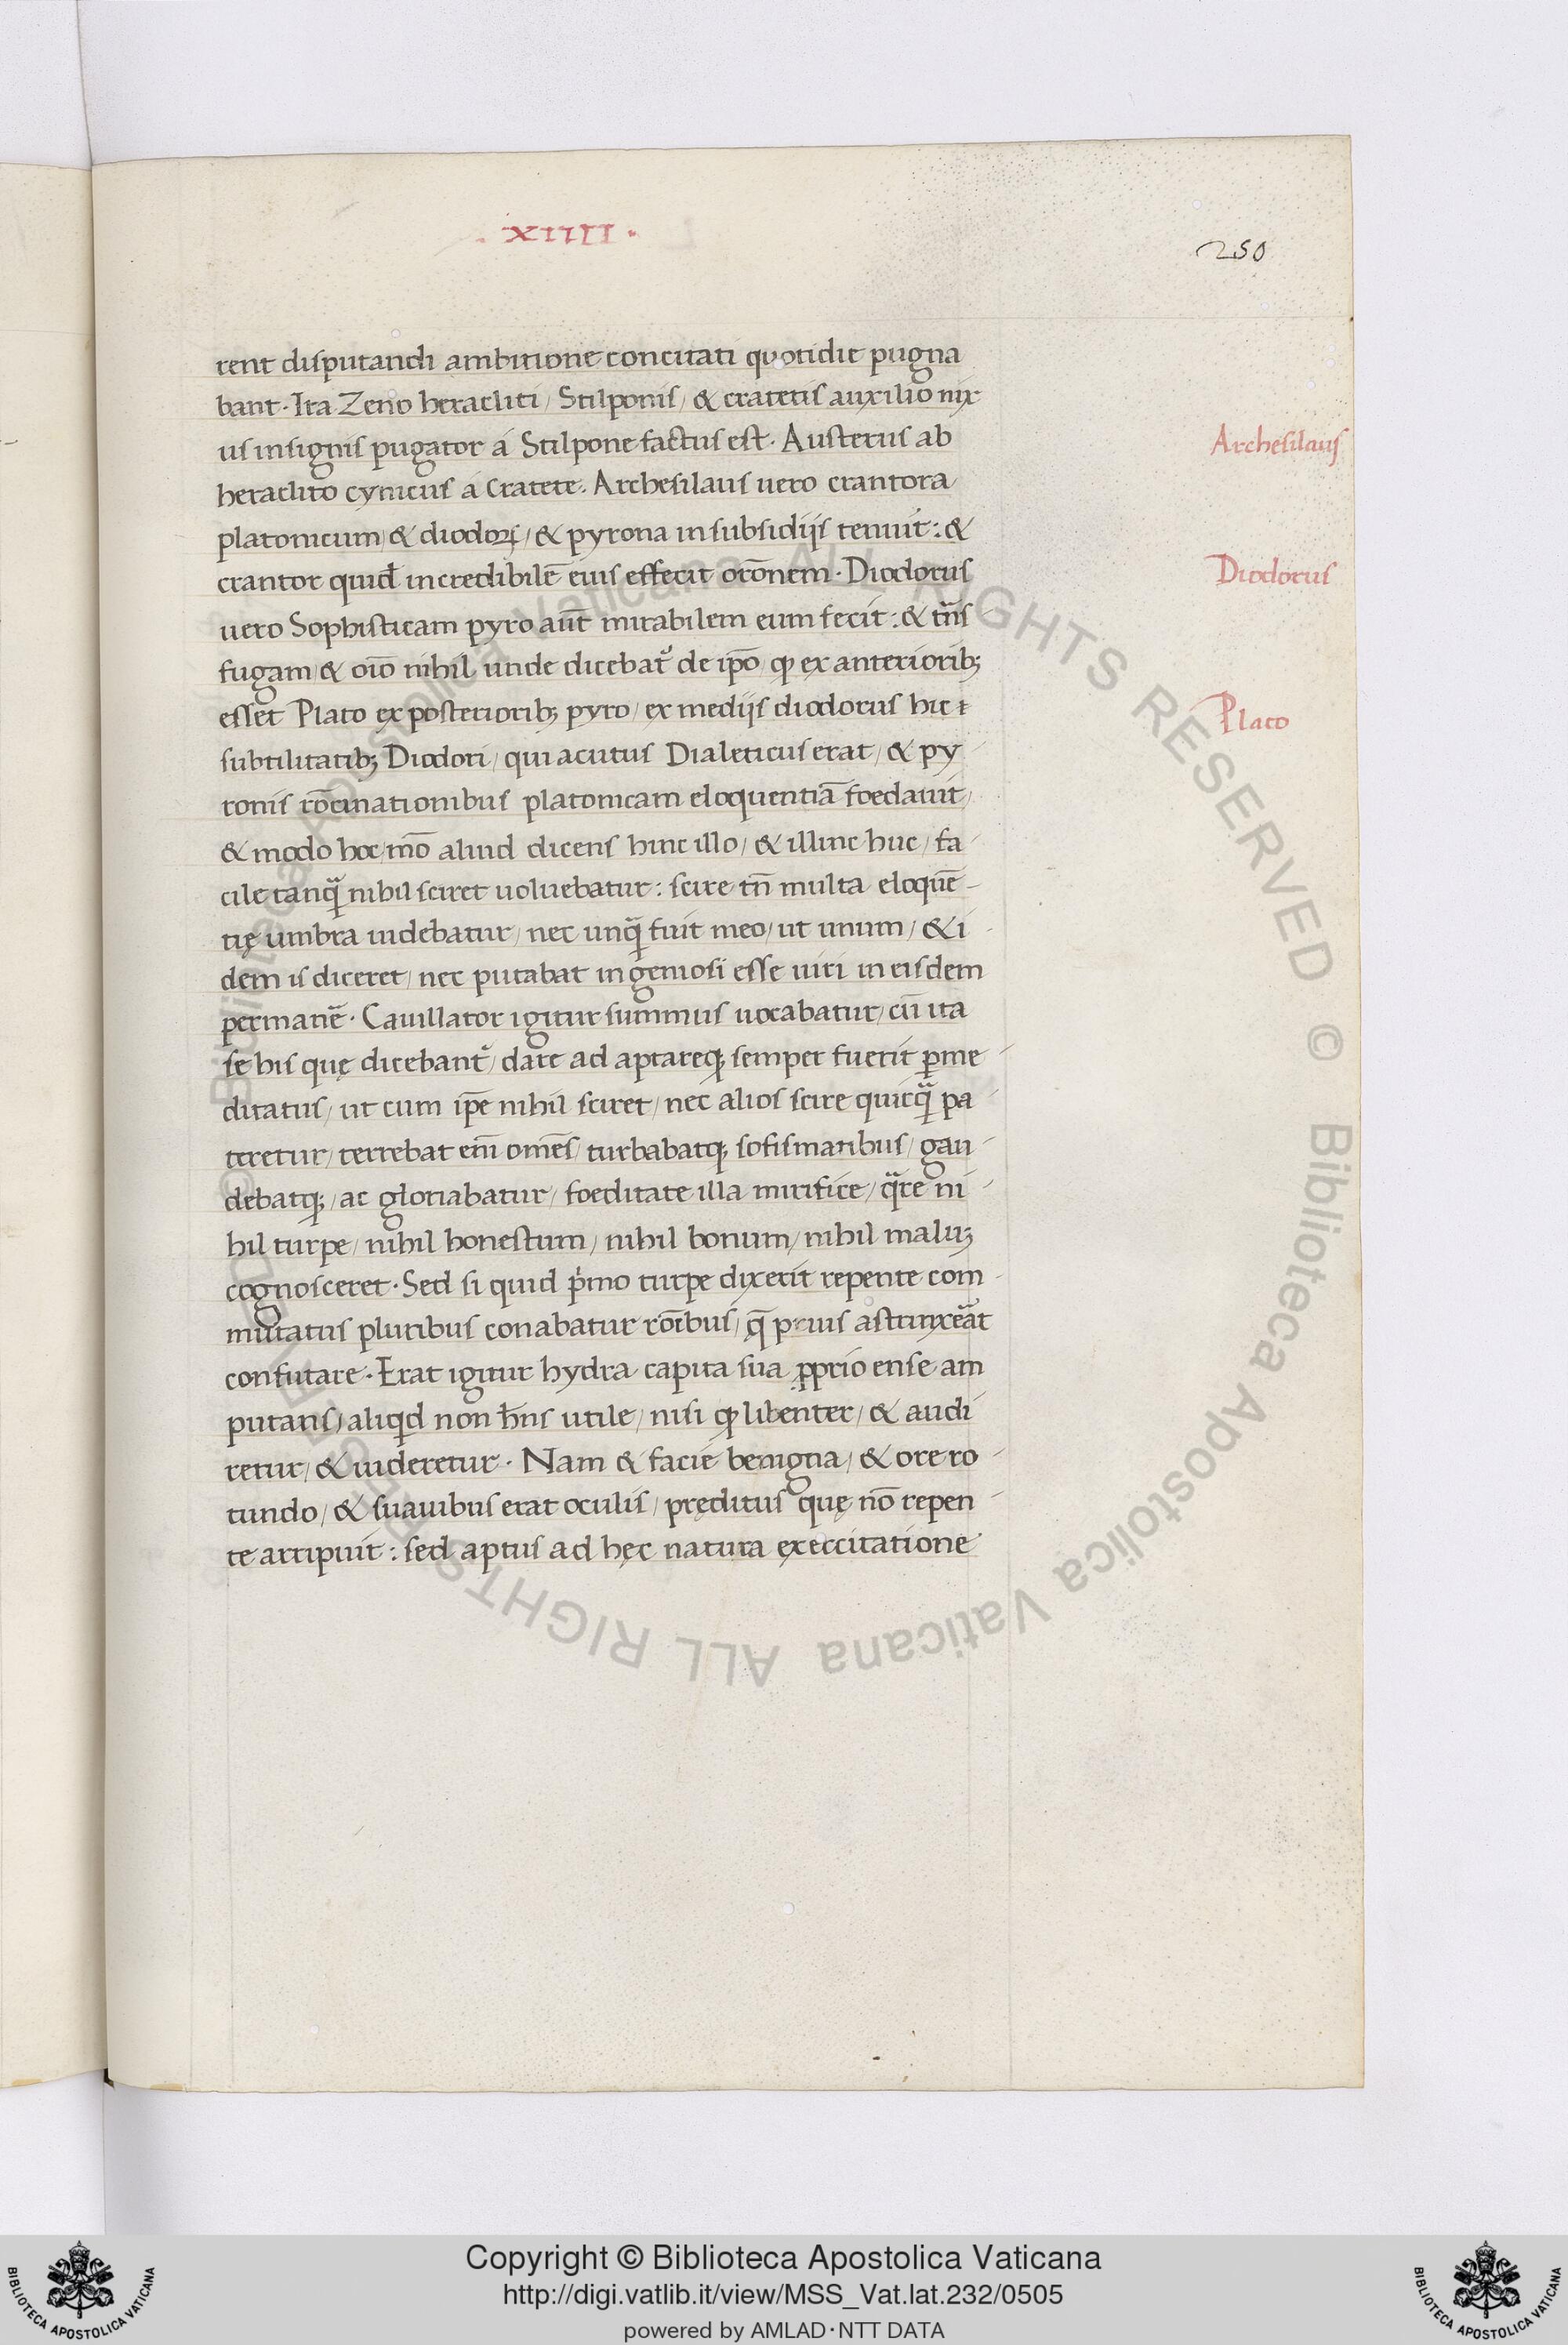 . XIIII .
250
rent disputandi ambitione concitati quotidie pugna
bant · Ita Zeno heracliti / Stilponis / & cratetis auxilio nix
us insignis pugator á Stilpone factus est · Austerus ab
Archesilaus
heraclito cynicus á Cratete · Archesilaus uero crantora
platonicum / & diodoꝝ / & pyrona in subsidijs tenuit : &
crantor quid incredibilē eius effecit orōnem · Diodorus
Diodorus
uero Sophisticam pyro aut̄ mirabilem eum fecit : & tn̄s
fugam / & oīo nihil unde dicebat᷑ de ip̄o / ꝙ ex anteriorib;
esset Plato ex posteriorib; pyro / ex medijs diodorus hic
Plato
subtilitatib; Diodori / qui acutus Dialeticus erat / & py
ronis rōcinationibus platonicam eloquentiā foedauit /
& modo hoc / mō aliud dicens hinc illo / & illinc huc / fa
cile tanqᷓ nihil sciret uoluebatur : scire tn̄ multa eloquē
tię umbra uidebatur / nec unqᷓ fuit meo / ut unum / & i
dem is diceret / nec putabat ingeniosi esse uiri in eisdem
permanē · Cauillator igitur summus uocabatur / cū ita
se his quę dicebant᷑ / dare ad aptareq; semper fuerit p̱me
ditatus / ut cum ip̄e nihil sciret / nec alios scire quicqᷓ pa
teretur / terrebat em̄ omēs / turbabatq; sofismatibus / gau
debatq; / ac gloriabatur / foeditate illa mirifice / qᷓre ni
hil turpe / nihil honestum / nihil bonum / nihil maluꝫ
cognosceret · Sed si quid pͥmo turpe dixerit repente com
mutatus pluribus conabatur rōibus / q̄ prius astrinxeāt
confutare · Erat igitur hydra capita sua ꝓprio ense am
putans / aliqd non hn̄s utile / nisi ꝙ libenter / & audi
retur / & uideretur · Nam & facie benigna / & ore ro
tundo / & suauibus erat oculis / pręditus quę nō repen
te arripuit : sed aptus ad hęc natura exercitatione
Copyright © Biblioteca Apostolica Vaticana
http://digi.vatlib.it/view/MSS_Vat.lat.232/0505
powered by AMLAD·NTT DATA
BIBLIOTECA APOSTOLICA VATICANA
BIBLIOTECA APOSTOLICA VATICANA
© Biblioteca Apostolica Vaticana ALL RIGHTS RESERVED
© Biblioteca Apostolica Vaticana ALL RIGHTS RESERVED